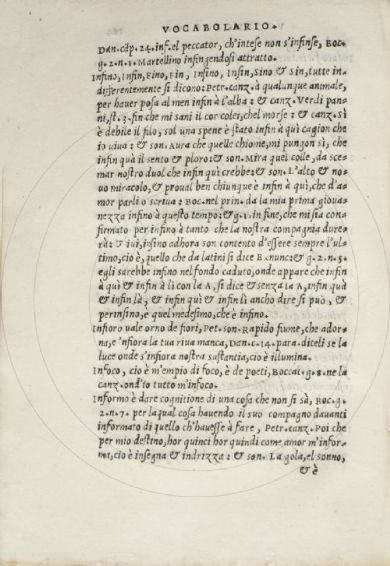 VOCABOLARIO.
Dan. cap. 24. inf. el peccator, ch'intese non s'infinse, Boc.
g. 2. n. 1. Martellino infingendosi attratto.
Infino, Infin, Fino, Fin, Insino, Insin, Sino & Sin, tutte in-
differentemente si dicono: Petr. canz. à qualunque animale,
per hauer posa al men infin à l'alba: & canz. Verdi pan-
ni, st. 3. fin che mi sani il cor colei, ch'el morse: & canz. Sì
è debile il filo, sol una spene è stato infin à quì cagion che
io uiua: & son. Aura che quelle chiome, mi pungon sì, che
infin quà il sento & ploro: & son. Mira quel colle, da sce-
mar nostro duol che infin quì crebbe: & son. L'alto & no-
uo miracolo, & proual ben chiunque è infin à quì, che d'a-
mor parli o scriua: Boc. nel prin. da la mia prima gioua-
nezza infino à questo tempo: & g. 1. in fine, che mi sia con-
firmato per infino à tanto che la nostra compagnia dure-
rà: & iui, infino adhora son contento d'essere sempre l'ul-
timo, cio è, quello che da latini si dice E. nunc: & g. 2. n. 5.
egli sarebbe infino nel fondo caduto, onde appare che infin
à quì & infin à lì con la A, si dice & senza la A, infin quà
& infin là, & infin quì & infin lì ancho dire si può, &
perinfino, e quel medesimo, che è infino.
Infioro uale orno de fiori, Pet. son. Rapido fiume, che ador-
na, e 'nfiora la tua riua manca, Dan. c. 14. para. diteli se la
luce onde s'infiora nostra sustantia, cio è illumina.
Infoco, cio è m'empio di foco, è de poeti, Boccai. g. 8. ne la
canz. ond'io tutto m'infoco.
Informo è dare cognitione di una cosa che non si sà, Boc. g.
2. n. 7. per laqual cosa hauendo il suo compagno dauanti
informato di quello c'hauesse à fare, Petr. canz. Poi che
per mio destino, hor quinci hor quindi come amor m'infor-
ma, cio è insegna & indrizza: & son. La gola, el sonno,
& è